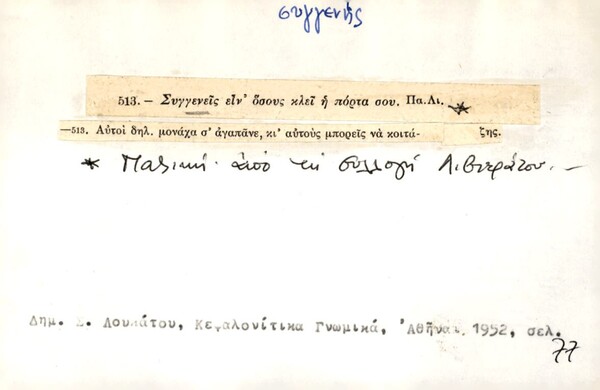 συγγενής
513. — Συγγενεῖς εἶν' ὅσους κλεῖ ἡ πόρτα σου. Πα.Λι. *
—513. Αὐτοὶ δηλ. μονάχα σ' ἀγαπᾶνε, κι' αὐτοὺς μπορεῖς νὰ κοιτά- ζης.
* ἀπὸ τὴ συλλογὴ Λιβιεράτου. —
Δημ. Σ. Λουκάτου, Κεφαλονίτικα Γνωμικά, Ἀθῆναι 1952, σελ.
77